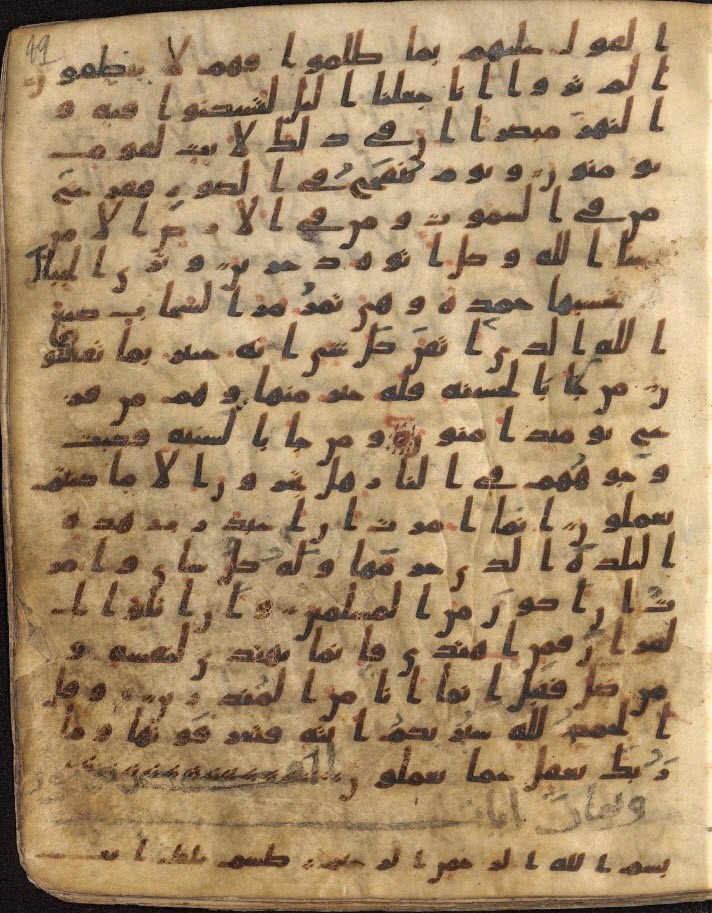 القول عليهم بما ظلموا فهم لا ينطقون
الم يروا انا جعلنا اليل ليسكنوا فيه و
النهر مبصرا ان في ذلك لايت لقوم
يومنون ويوم ينفخ في الصور ففزع
من في السموت ومن في الارض الا من
شا الله وكل اتوه دخرين وترى الجبال
تحسبها جمده وهي تمر مر السحاب صنع
الله الذي اتقن كل شي انه خبير بما تفعلو
ن من جا بالحسنه فله خير منها وهم من فز
ع يومئذ امنون ومن جا بالسيئه فكبت
وجوههم في النار هل تجزون الا ما كنتم
تعملون انما امرت ان اعبد رب هذه
البلده الذي حرمها وله كل شي وامر
ت ان اكون من المسلمين وان اتلوا ا
لقران فمن اهتدى فانما يهتدي لنفسه و
من ضل فقل انما انا من المنذرين وقل
الحمد لله سيريكم ايته فتعرفونها وما
ربك بغفل عما تعملون
بسم الله الرحمن الرحيم طسم تلك ايت